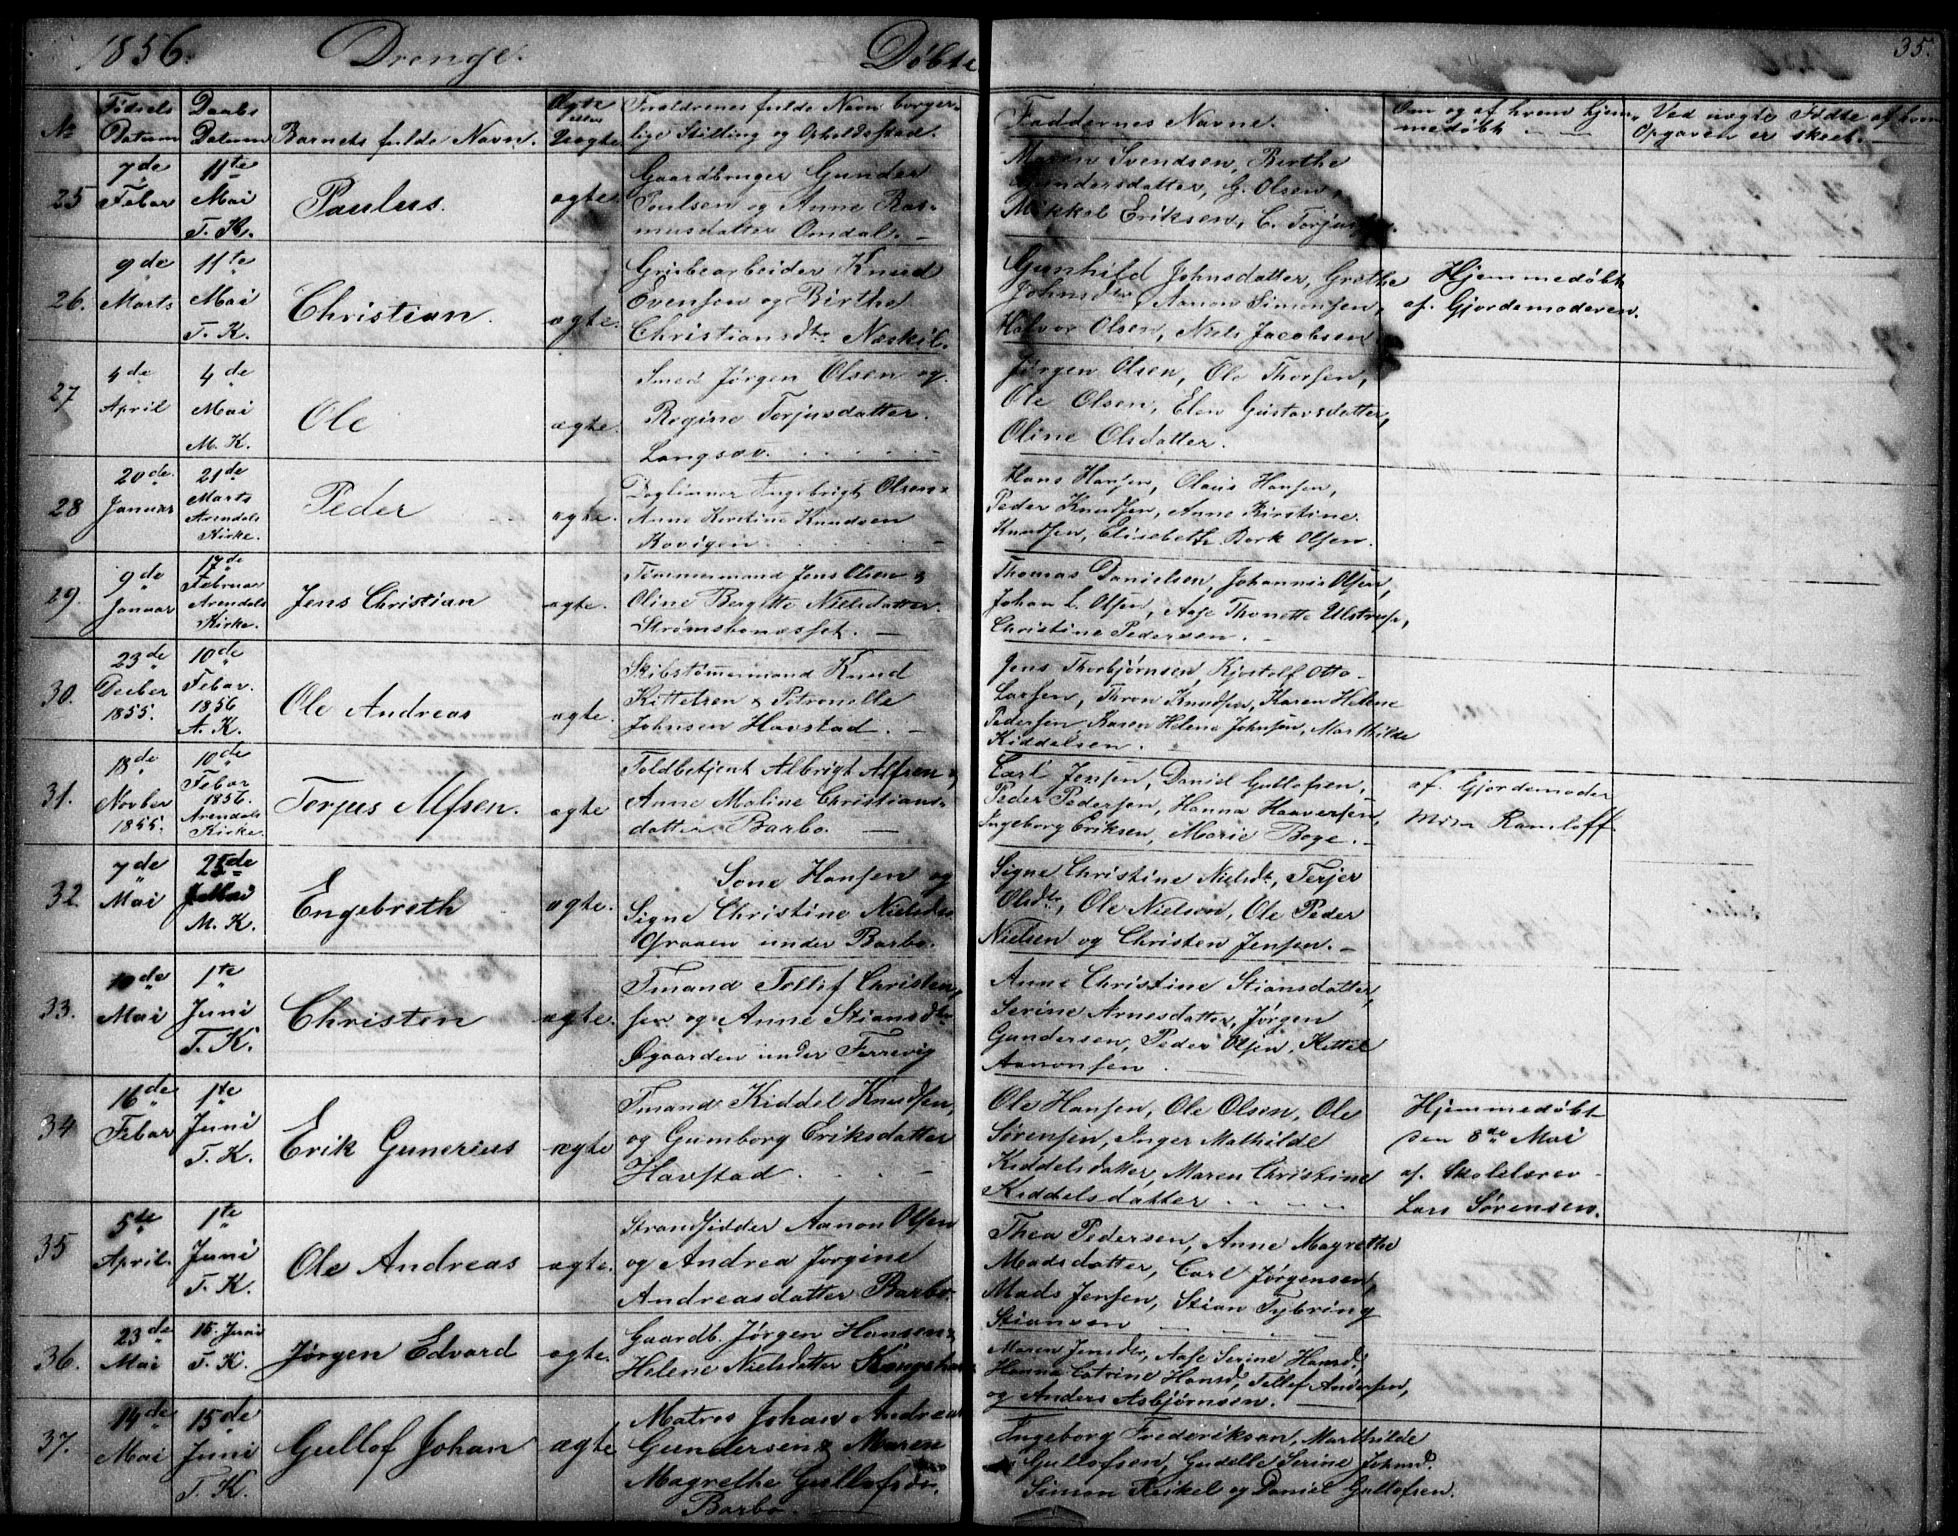 1856. Drenge. Døbte 35.
No
Fødsels Datum
Daabs Datum
Barnets fulde Navn.
Ægte eller Uægte.
Forældrenes fulde Navn borger-
lige Stilling og Opholdssted.
Faddernes Navne.
Om og af hvem hjem-
medøbt
Ved uægte Fødte af hvem
Opgaven er skeet.
25
7de Febar
11te Mai T. K.
Paulus.
ægte.
Gaardbruger Gunder
Poulsen og Anne Ras-
musdatter Omdal.
Maren Svendsen, Birthe
Gundersdatter, G. Olsen,
Mikkel Eriksen, C.
26.
9de Marts
11te Mai T. K.
Christian.
ægte.
Grubearbeider Knud
Evensen og Birthe
Christiansdtr Næskil.
Gunhild Johnsdatter, Grethe
Johnsdtr, Aanon Simonsen,
Halvor Olsen, Niels Jacobsen
Hjemmedøbt
af Gjordemoderen.
27
April
4de Mai M. K.
Ole
ægte.
Smed Jørgen Olsen og
Regine Torjusdatter
Langsæv.
Jørgen Olsen, Ole Thorsen,
Ole Olsen, Elen Gustavsdatter,
Oline Olsdatter.
28
20de Januar
21de Marts Arendals Kirke.
Peder
ægte.
Daglønner Engebrigt Olsen
Anne Kirstine Knudsen
Kovigen
Hans Hansen, Olaus Hansen,
Peder Knudsen, Anne Kirstine
Knudsen, Elisebeth Berk Olsen.
29.
9de Januar
17de Februar Arendals Kirke.
Jens Christian
ægte.
Tømmermand Jens Olsen &
Oline Bergitte Nielsdatter
Strømsbonæsset.
Thomas Danielsen, Johannes Olsen,
Johan L. Olsen, Aase Thonette Ulstrup,
Christine Pedersen.
30.
23de Deeber 1855.
10de Febar. 1856 A. K.
Ole Andreas
ægte.
Skibstømermand Knud
Kittelsen & Petronelle
Johnsen Havstad.
Jens Thorbjørnsen, Kjostolf Otto
Larsen, Thron Knudsen, Karen Helene
Pedersen, Karen Helene Johnsen, Marthilde
Kiddelsen.
31.
18de Novber 1855.
10de Febar 1856. Arendals Kirke.
Torjus Alfsen.
ægte
Toldbetjent Albrigt Alfsen &
Anne Maline Christians-
datter Barbo.
Carl Jensen, Daniel Gullofsen,
Peder Pedersen, Hanna Haaversen,
Ingeborg Eriksen, Marie Boge.
af Gjordemoder
Mina Ramloff
32.
7de Mai
25de Mai M. K.
Engebreth
ægte.
Sone Hansen og
Signe Christine Nielsdtr
Graaen under Barbo.
Signe Christine Nielsdt, Terjer
Olsdtr, Ole Nielsen, Ole Peder
Nielsen og Christen Jensen.
33.
10de Mai
1te Juni T. K.
Christen
ægte.
Tmand Tellef Christen-
sen og Anne Stiansdtr
Øgaarden under Færevig
Anne Christine Stiansdatter,
Serine Arnesdatter, Jørgen
Gundersen, Peder Olsen, Kettel
Aanonsen
34
16de Febar
1te Juni T. K.
Erik Gunerius
ægte
Tmand Kiddel Knudsen,
og Gumborg Eriksdatter
Havstad
Ole Hansen, Ole Olsen, Ole
Sørensen, Inger Mathilde
Kiddelsdatter, Maren Christine
Kiddelsdatter
Hjemmedøbt
den 8de Mai
af Skolelærer
Lars Sørensen.
35
5te April.
1te Juni T. K.
Ole Andreas
ægte.
Strandsidder Aanon Olsen
og Andrea Jørgine
Andreasdatter Barbo
Thea Pedersen, Anne Magrethe
Madsdatter, Carl Jørgensen,
Mads Jensen, Stian Tybring
Stiansen
36.
23de Mai
15. Juni T. K.
Jørgen Edvard
ægte.
Gaardb. Jørgen Hansen &
Helene Nielsdatter
Maren Jensdtr, Aase Serine Hansd,
Hanna Catrine Hansd, Tellef Andersen,
og Anders Asbjørnsen.
37.
14de Mai
15de Juni T. K.
Gullof Johan
ægte
Matros Johan Andreas
Gundersen & Maren
Magrethe Gullofsdtr.
Barbo.
Ingeborg Frederiksen, Marthilde
Gullofsen, Gudelle Serine Johnsd.
Simon Reikel og Daniel Gullofsen.